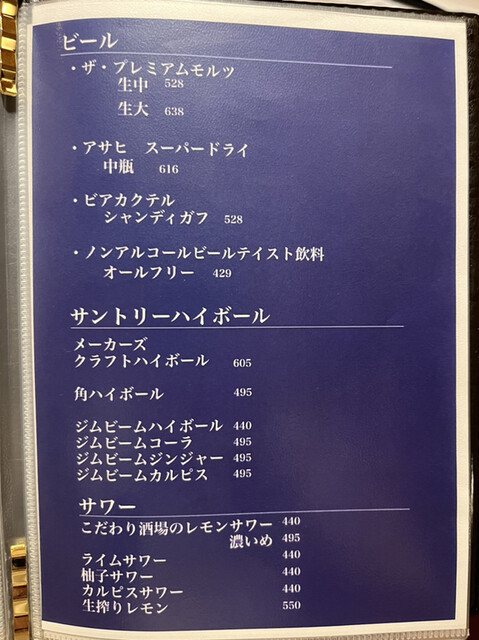 ビール
・ザ・プレミアムモルツ
生中 528
生大 638
・アサヒ スーパードライ
中瓶 616
・ビアカクテル
シャンディガフ 528
・ノンアルコールビールテイスト飲料
オールフリー 429
サントリーハイボール
メーカーズ
クラフトハイボール 605
角ハイボール 495
ジムビームハイボール 440
ジムビームコーラ 495
ジムビームジンジャー 495
ジムビームカルピス 495
サワー
こだわり酒場のレモンサワー 440
濃いめ 495
ライムサワー 440
柚子サワー 440
カルピスサワー 440
生搾りレモン 550